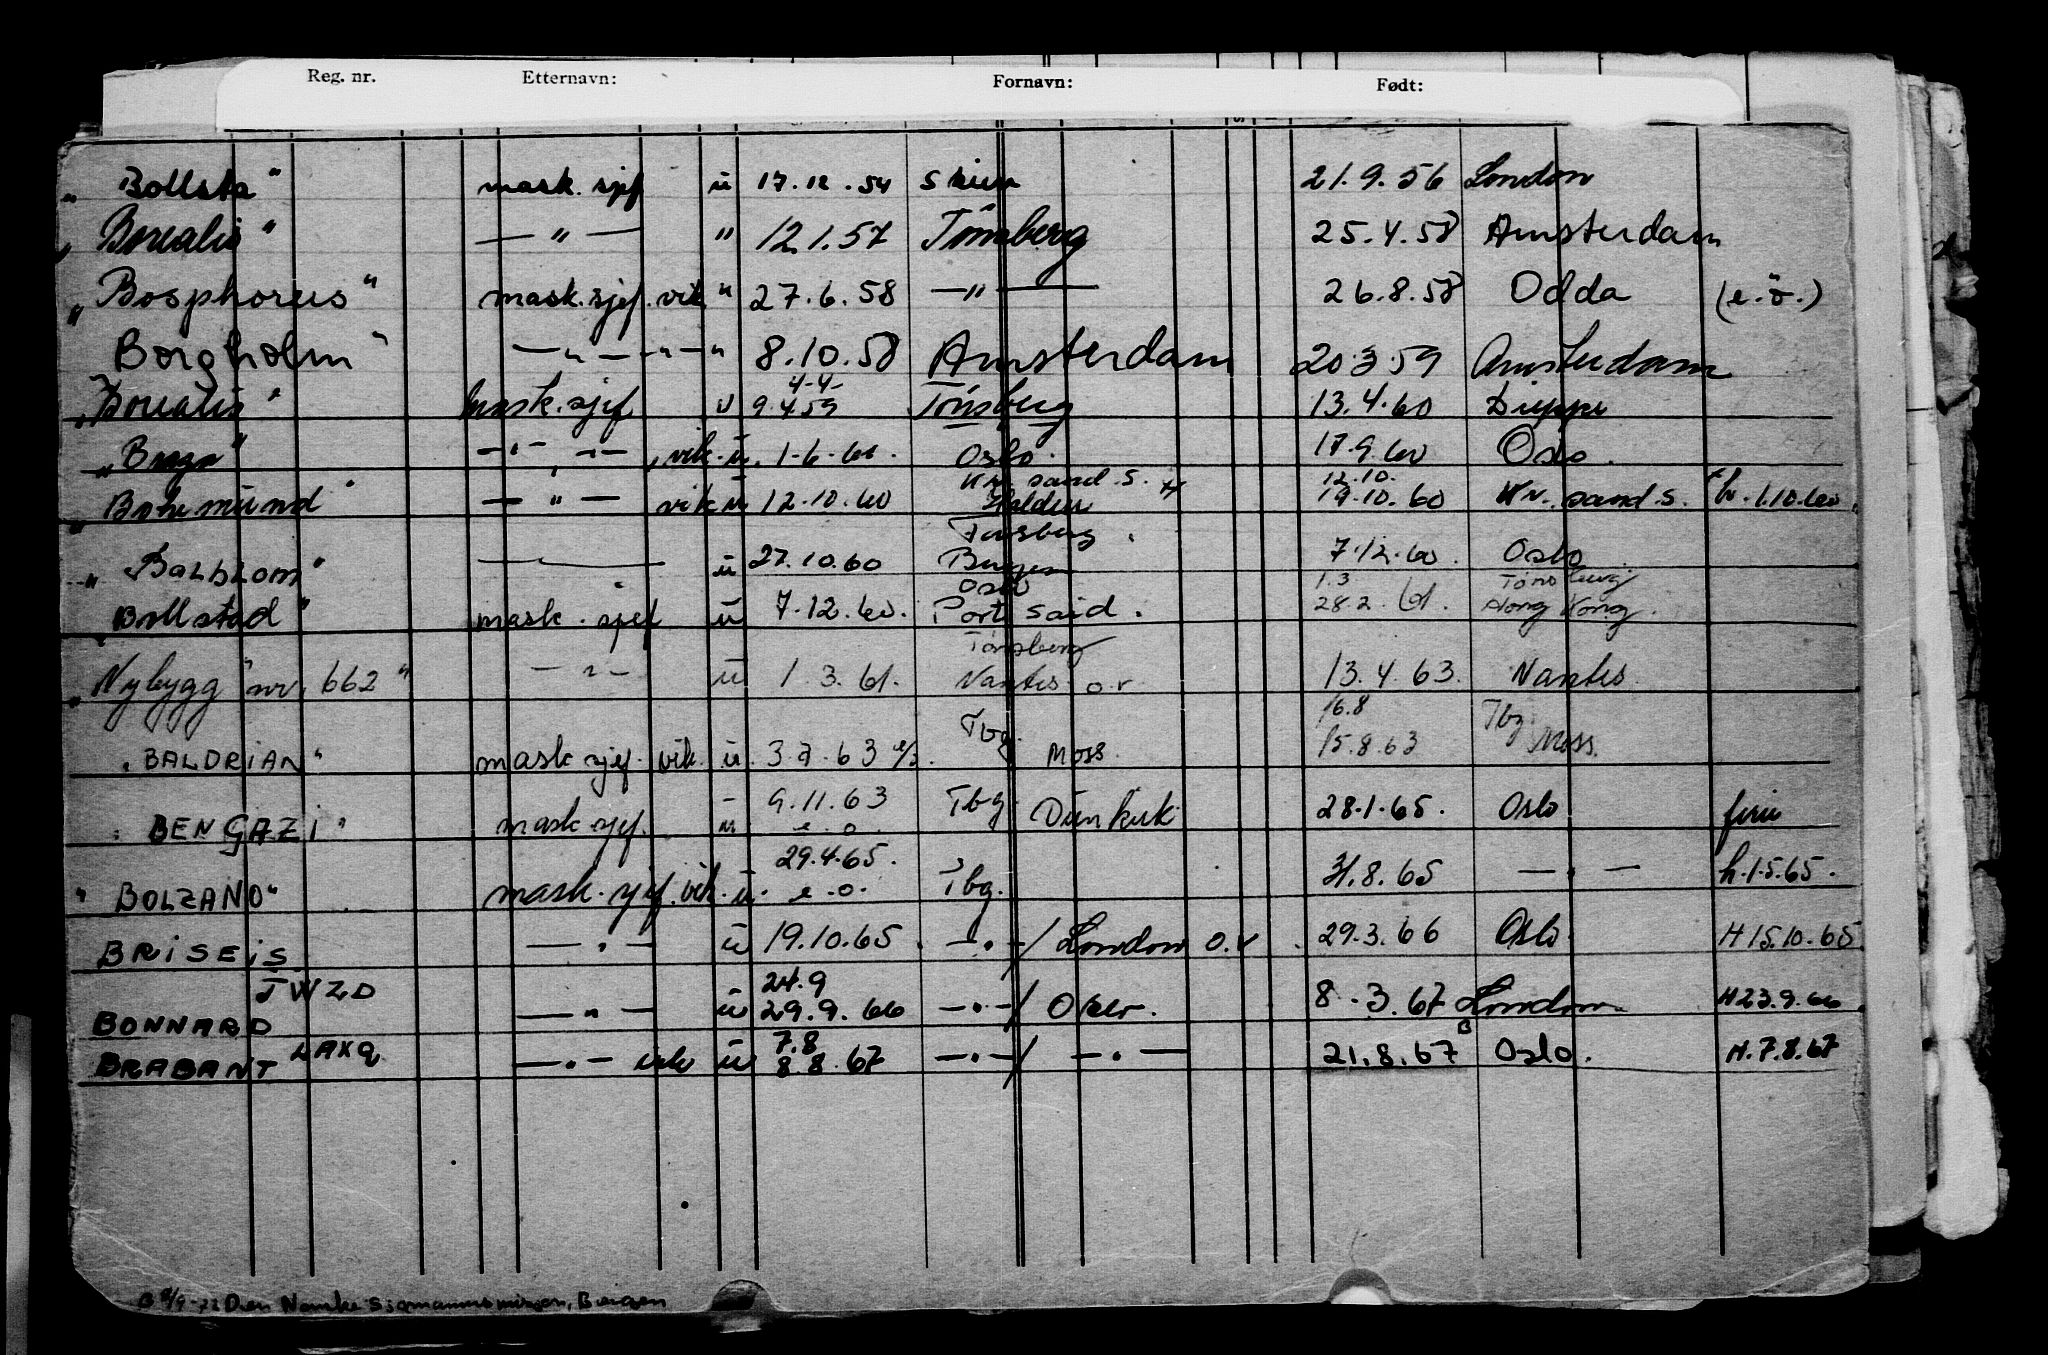 Reg. nr. Etternavn: Fornavn: Født:
„ Bollsta " mask. sjef ü 17.12.54 Skien 21.9.56 London
„ Borealis " — " — " 12.1.57 Tønsberg 25.4.58 Amsterdam
„ Bosphorus " mask. sjef. vik " 27.6.58 — " — 26.8.58 Odda (e.ö.)
Borgholm " — " — " — " 8.10.58 Amsterdam 20.3.59 Amsterdam
4-4-
„ Borealis " mask. sjef ü 9.4.59 Tønsberg 13.4.60 Dieppe
„ " — " — " — vik. ü. 1.6.60. Oslo. 17.9.60 Oslo.
Kr. sand. S. 12.10.
„ Bohemund " — " — vik ü 12.10.60 Halden 19.10.60 Kr. sand. S. h. 1.10.60.
Tønsberg.
„ Balblom " — ü 27.10.60 Bergen 7.12.60. Oslo
Oslo 1.3 Tønsberg
„ Bollstad " mask. sjef ü 7.12.60. Port Said. 28.2.61. Hong Kong.
Tønsberg
„ Nybygg nr. 662 " — " — ü 1.3.61. Nantes o.r 13.4.63. Nantes
Tbg. 16.8 Tbg.
„ BALDRIAN " mask. sjef. vik. ü. 3.7.63 Moss. 15.8.63 Moss.
9.11.63 Tbg. 28.1.65. Oslo
„ BENGAZI " mask. sjef. ü e.o. Dunkirk ferie
29.4.65.
„ BOLZANO " mask. sjef. vik. ü. e.o. Tbg. 31.8.65 — " — h. 1.5.65.
BRISEIS — " — ü 19.10.65. — " — / London o.r. 29.3.66 Oslo H 15.10.65
JWZD 24.9
BONNARD — " — ü 29.9.66 — " — / Oslo. 8.3.67 London H 23.9.66.
LAXQ 7.8 B
BRABANT — " — vik ü 8.8.67 — " — / — " — 21.8.67 Oslo. H. 7.8.67
B 8/9-72 Den Norske Sjømannsmisjon, Bergen